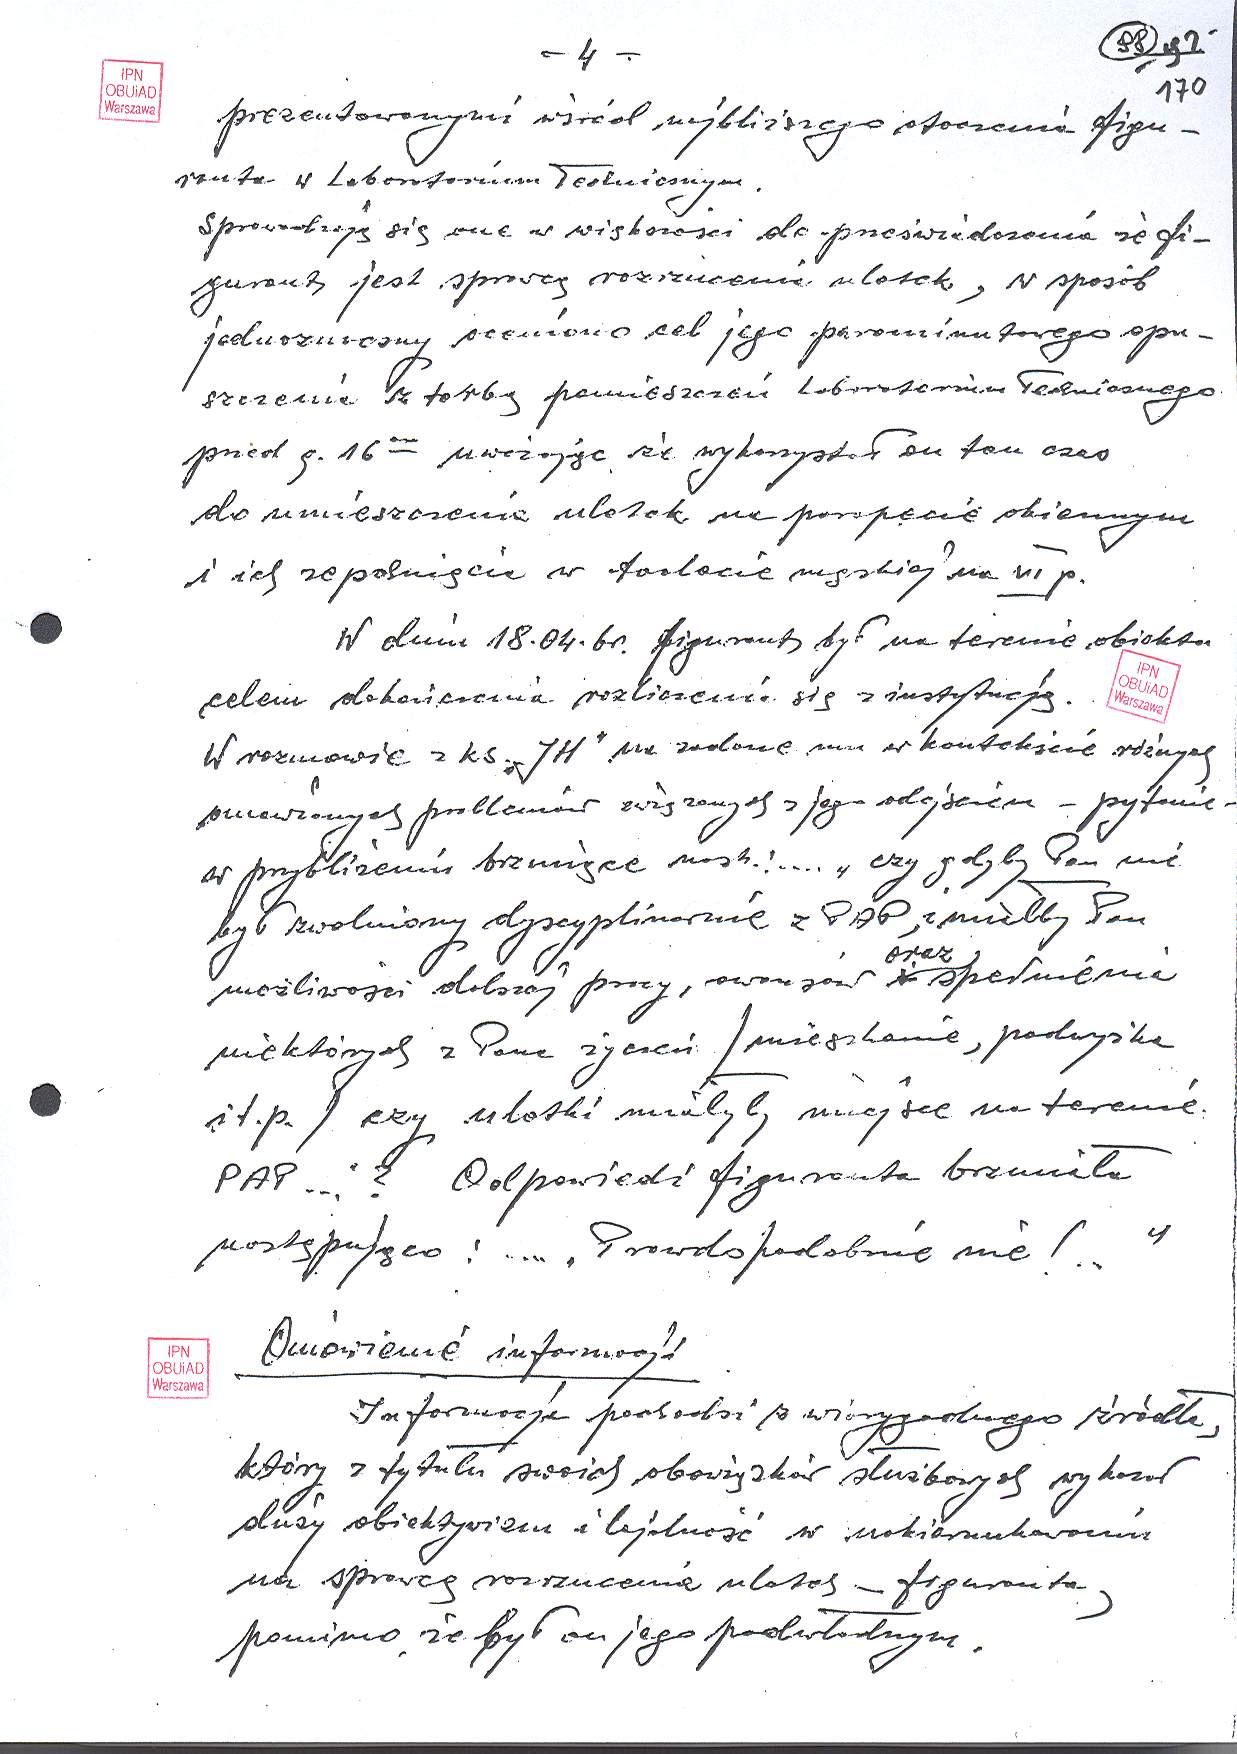 - 4 -
88
170
IPN
OBUiAD
Warszawa
prezentowanymi wśród najbliższego otoczenia figu-
ranta w Laboratorium Technicznym.
Sprowadzają się one w większości do przeświadczenia że fi-
gurant jest sprawcą rozrzucenia ulotek, w sposób
jednoznaczny oceniono cel jego parominutowego opu-
szczenia z torbą pomieszczeń Laboratorium Technicznego
przed g. 16 oo uważając że wykorzystał on ten czas
do umieszczenia ulotek na parapecie okiennym
i ich zepchnięcie w toalecie męskiej na VI p.
W dniu 18.04.br. figurant był na terenie obiektu
celem dokończenia rozliczenia się z instytucją.
IPN
OBUiAD
Warszawa
W rozmowie z ks. „JH" na zadane mu w kontekście różnych
omawianych problemów związanych z jego odejściem - pytanie -
w przybliżeniu brzmiące nast.: .... „ czy gdyby Pan nie
był zwolniony dyscyplinarnie z PAP, i miałby Pan
możliwości dalszej pracy, awansów oraz spełnienia
niektórych z Pana życzeń / mieszkanie, podwyżka
it.p. / czy ulotki miałyby miejsce na terenie
PAP ..." ? Odpowiedź figuranta brzmiała
następująco : .... „ Prawdopodobnie nie ! .. "
IPN
OBUiAD
Warszawa
Omówienie informacji
Informacja pochodzi z wiarygodnego źródła,
który z tytułu swoich obowiązków służbowych wykazał
duży obiektywizm i lojalność w ukierunkowaniu
na sprawcę rozrzucenia ulotek - figuranta,
pomimo że był on jego podwładnym.